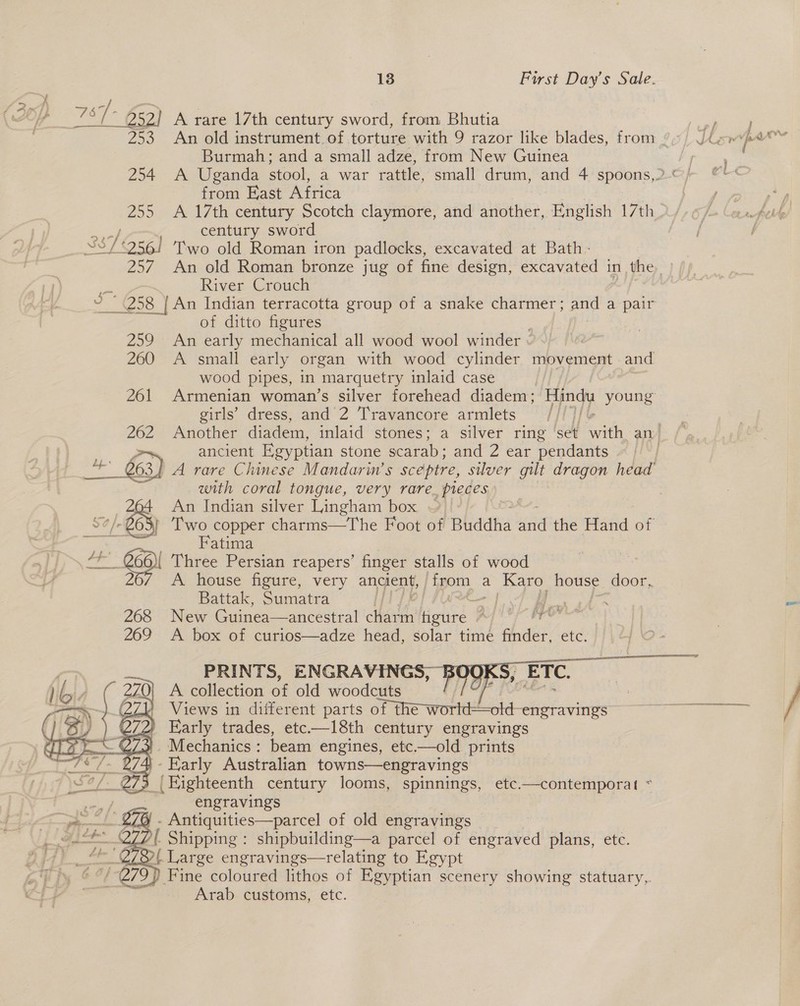 13 First Day's Sale.
252 A rare 17th century sword, from Bhutia
253 An old instrument of torture with 9 razor like blades, from
Burmah; and a small adze, from New Guinea
254 A Uganda stool, a war rattle, small drum, and 4 spoons,
from East Africa
255 A 17th century Scotch claymore, and another, English 17th
century sword
256 Two old Roman iron padlocks, excavated at Bath
257 An old Roman bronze jug of fine design, excavated in the
River Crouch
258 An Indian terracotta group of a snake charmer; and a pair
of ditto figures
259 An early mechanical all wood wool winder
260 A small early organ with wood cylinder movement and
wood pipes, in marquetry inlaid case
261 Armenian woman's silver forehead diadem; Hindu young
girls' dress, and 2 Travancore armlets
262 Another diadem, inlaid stones; a silver ring set with an
ancient Egyptian stone scarab; and 2 ear pendants
263 A rare Chinese Mandarin's sceptre, silver gilt dragon head
with coral tongue, very rare pieces
264 An Indian silver Lingham box
265 Two copper charms—The Foot of Buddha and the Hand of
Fatima
266 Three Persian reapers' finger stalls of wood
267 A house figure, very ancient, from a Karo house door,
Battak, Sumatra
268 New Guinea—ancestral charm figure
269 A box of curios—adze head, solar time finder, etc.
PRINTS, ENGRAVINGS, BOOKS, ETC.
270 A collection of old woodcuts
271 Views in different parts of the world—old engravings
272 Early trades, etc.—18th century engravings
273 Mechanics: beam engines, etc.—old prints
274 Early Australian towns—engravings
275 Eighteenth century looms, spinnings, etc.—contemporat
engravings
276 Antiquities—parcel of old engravings
277 Shipping: shipbuilding—a parcel of engraved plans, etc.
278 Large engravings—relating to Egypt
279 Fine coloured lithos of Egyptian scenery showing statuary,
Arab customs, etc.